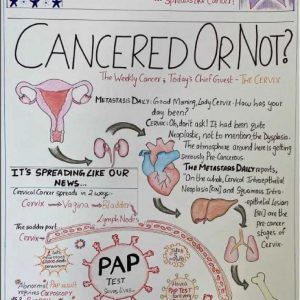 Spreads like Cancer!
CANCERED OR NOT?
The Weekly Cancer, Today's Chief Guest - The CERVIX
METASTASIS DAILY: Good Morning, Lady Cervix - How has your
day been?
CERVIX: Oh, don't ask! It had been quite
Neoplastic, not to mention the Dysplasia.
The atmosphere around here is getting
seriously Pre-Cancerous.
THE METASTASIS DAILY reports,
"On the whole, Cervical Intraepithelial
Neoplasia [CIN] and Squamous Intra-
epithelial Lesion
[SIL] are the pre-
cancer stages
of Cervix
IT'S SPREADING LIKE OUR
NEWS...
Cervical Cancer spreads in 2 ways:
Cervix → Vagina → Bladder
Lymph Nodes
The sadder part
Cervix
PAP
TEST
Saves lives...
PAP
TEST
Abnormal PAP result
requires Colposcopy